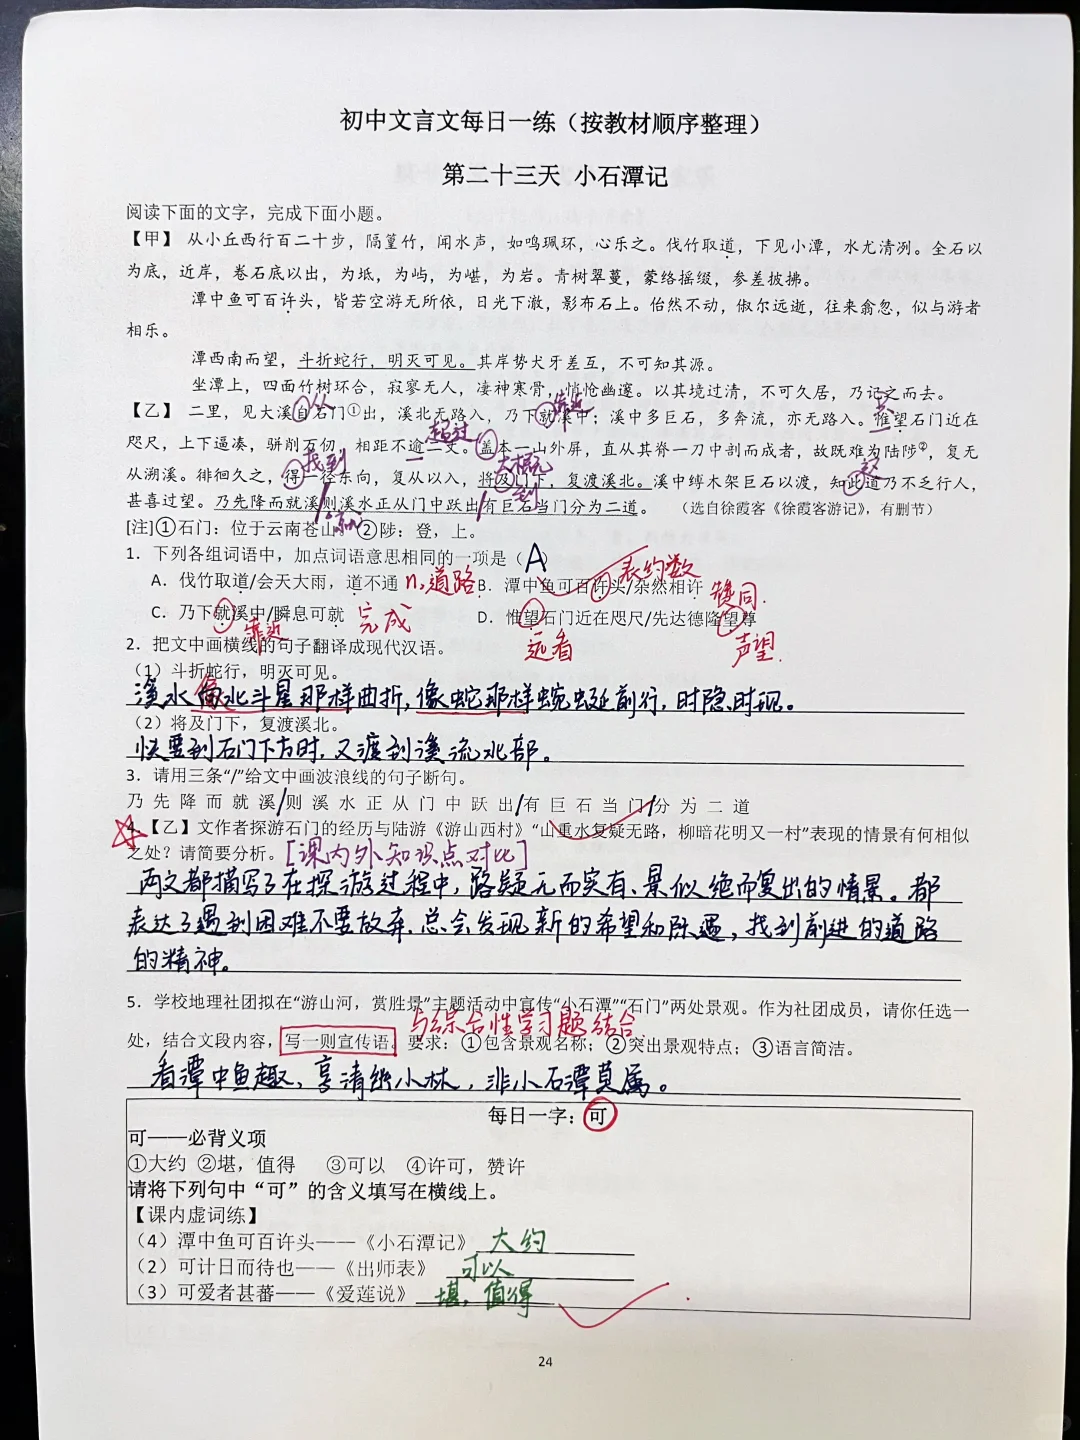 初中文言文每日一练（按教材顺序整理）
第二十三天 小石潭记
阅读下面的文字，完成下面小题。
【甲】 从小丘西行百二十步，隔篁竹，闻水声，如鸣珮环，心乐之。伐竹取道，下见小潭，水尤清冽。全石以
为底，近岸，卷石底以出，为坻，为屿，为嵁，为岩。青树翠蔓，蒙络摇缀，参差披拂。
潭中鱼可百许头，皆若空游无所依，日光下澈，影布石上。佁然不动，俶尔远逝，往来翕忽，似与游者
相乐。
潭西南而望，斗折蛇行，明灭可见。其岸势犬牙差互，不可知其源。
坐潭上，四面竹树环合，寂寥无人，凄神寒骨，悄怆幽邃。以其境过清，不可久居，乃记之而去。
从 靠近 只
【乙】 二里，见大溪自石门①出，溪北无路入，乃下就溪中；溪中多巨石，多奔流，亦无路入。惟望石门近在
超过
咫尺，上下逼凑，骈削百仞，相距不逾二丈。盖本一山外屏，直从其脊一刀中剖而成者，故既难为陆陟②，复无
找到 大概
从溯溪。徘徊久之，得一径东向，复从以入，将及门下，复渡溪北。溪中缚木架巨石以渡，知此道乃不乏行人，
到
甚喜过望。乃先降而就溪/则溪水正从门中跃出/有巨石当门分为二道。 （选自徐霞客《徐霞客游记》，有删节）
[注]①石门：位于云南苍山。②陟：登，上。
1．下列各组词语中，加点词语意思相同的一项是（ A ）
A．伐竹取道/会天大雨，道不通 n,道路 B．潭中鱼可百许头/杂然相许 表约数 赞同.
C．乃下就溪中/瞬息可就 靠近 完成 D．惟望石门近在咫尺/先达德隆望尊 远看 声望.
2．把文中画横线的句子翻译成现代汉语。
（1）斗折蛇行，明灭可见。
溪水像北斗星那样曲折，像蛇那样蜿蜒前行，时隐时现。
（2）将及门下，复渡溪北。
快要到石门下方时，又渡到溪流北部。
3．请用三条“/”给文中画波浪线的句子断句。
乃 先 降 而 就 溪/则 溪 水 正 从 门 中 跃 出/有 巨 石 当 门/分 为 二 道
4．【乙】文作者探游石门的经历与陆游《游山西村》“山重水复疑无路，柳暗花明又一村”表现的情景有何相似
之处？请简要分析。[课内外知识点对比]
两文都描写了在探游过程中，路疑无而实有、景似绝而复出的情景。都
表达了遇到困难不要放弃，总会发现新的希望和际遇，找到前进的道路
的精神。
5．学校地理社团拟在“游山河，赏胜景”主题活动中宣传“小石潭”“石门”两处景观。作为社团成员，请你任选一
与综合性学习题结合.
处，结合文段内容，写一则宣传语。要求：①包含景观名称；②突出景观特点；③语言简洁。
看潭中鱼趣，享清幽小林，非小石潭莫属。
每日一字：可
可——必背义项
①大约 ②堪，值得 ③可以 ④许可，赞许
请将下列句中“可”的含义填写在横线上。
【课内虚词练】
（4）潭中鱼可百许头——《小石潭记》 大约
（2）可计日而待也——《出师表》 可以
（3）可爱者甚蕃——《爱莲说》 堪，值得
24